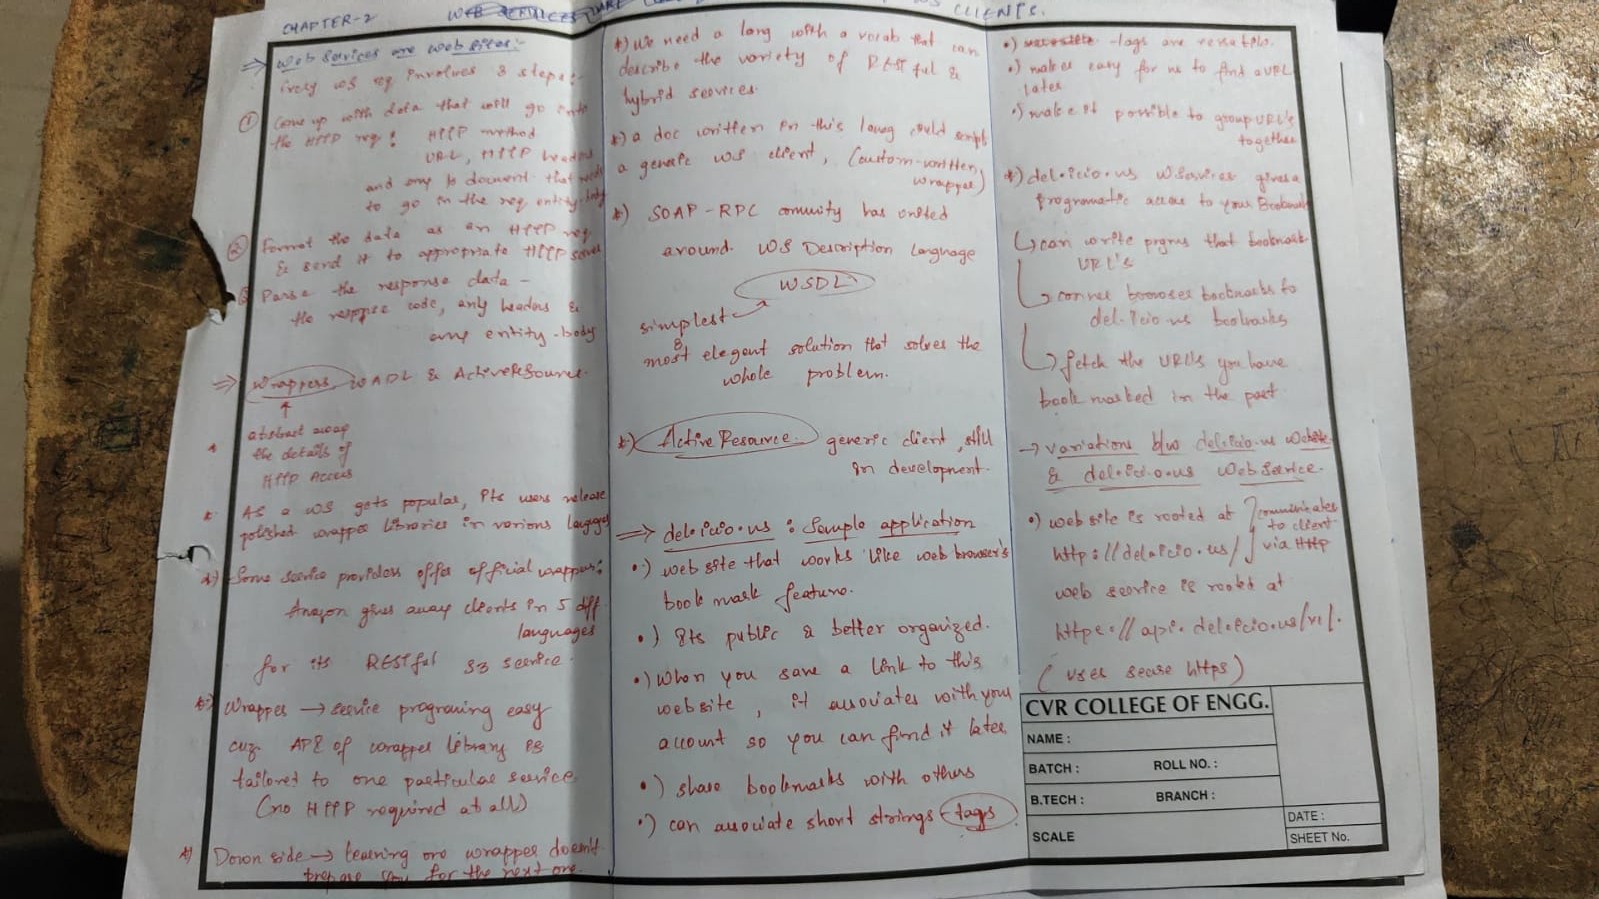 CHAPTER-2
WS CLIENTS.
⇒ Web Services are web sites:-
Every WS req involves 3 steps:-
① Come up with data that will go into
the HTTP req: HTTP method
URL, HTTP headers
and any document that needs
to go in the req entity-body
② Format the data as an HTTP req
& send it to appropriate HTTP server
③ Parse the response data -
the response code, any headers &
any entity-body
⇒ Wrappers, WADL & ActiveResource.
abstract away
the details of
HTTP Access
* As a WS gets popular, its users release
polished wrapper libraries in various languages
*) Some service providers offer official wrappers:
Amazon gives away clients in 5 diff
languages
for its RESTful S3 service.
*) Wrapper → service programing easy
cuz API of wrapper library is
tailored to one particular service
(no HTTP required at all)
*) Down side → learning one wrapper doesn't
prepare you for the next one
*) We need a lang with a vocab that can
describe the variety of RESTful &
hybrid services.
*) a doc written in this lang could script
a generic WS client, (custom-written
wrapper)
*) SOAP-RPC comunity has united
around WS Description Language
WSDL
simplest
&
most elegant solution that solves the
whole problem.
*) Active Resource generic client, still
in development.
⇒ del.icio.us : Sample application
•) web site that works like web browser's
book mark feature.
•) Its public & better organized.
•) When you save a link to this
website, it associates with your
account so you can find it later
•) share bookmarks with others
•) can associate short strings (tags)
•) tags are versatile.
•) makes easy for us to find a URL
later
•) make it possible to group URL's
together
*) del.icio.us WService gives a
programatic access to your Bookmark
↳ can write prgms that bookmark
URL's
↳ browser bookmarks to
del.icio.us bookmarks
↳ fetch the URL's you have
book marked in the past
→ variations b/w del.icio.us Website
& del.icio.us Web Service.
•) web site is rooted at } communicates
to client
http://del.icio.us/ via HTTP
web service is rooted at
https://api.del.icio.us/v1/.
(uses secure https)
CVR COLLEGE OF ENGG.
NAME :
BATCH : ROLL NO. :
B.TECH : BRANCH :
SCALE
DATE :
SHEET No.